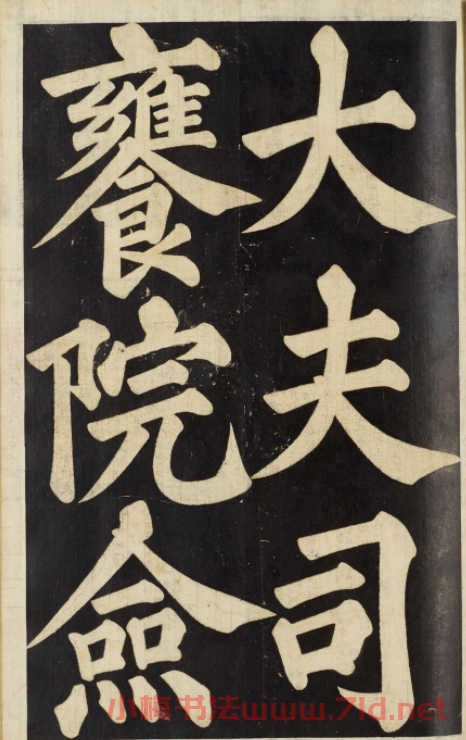 大夫司
饔院僉
小梅书法www.7ld.net